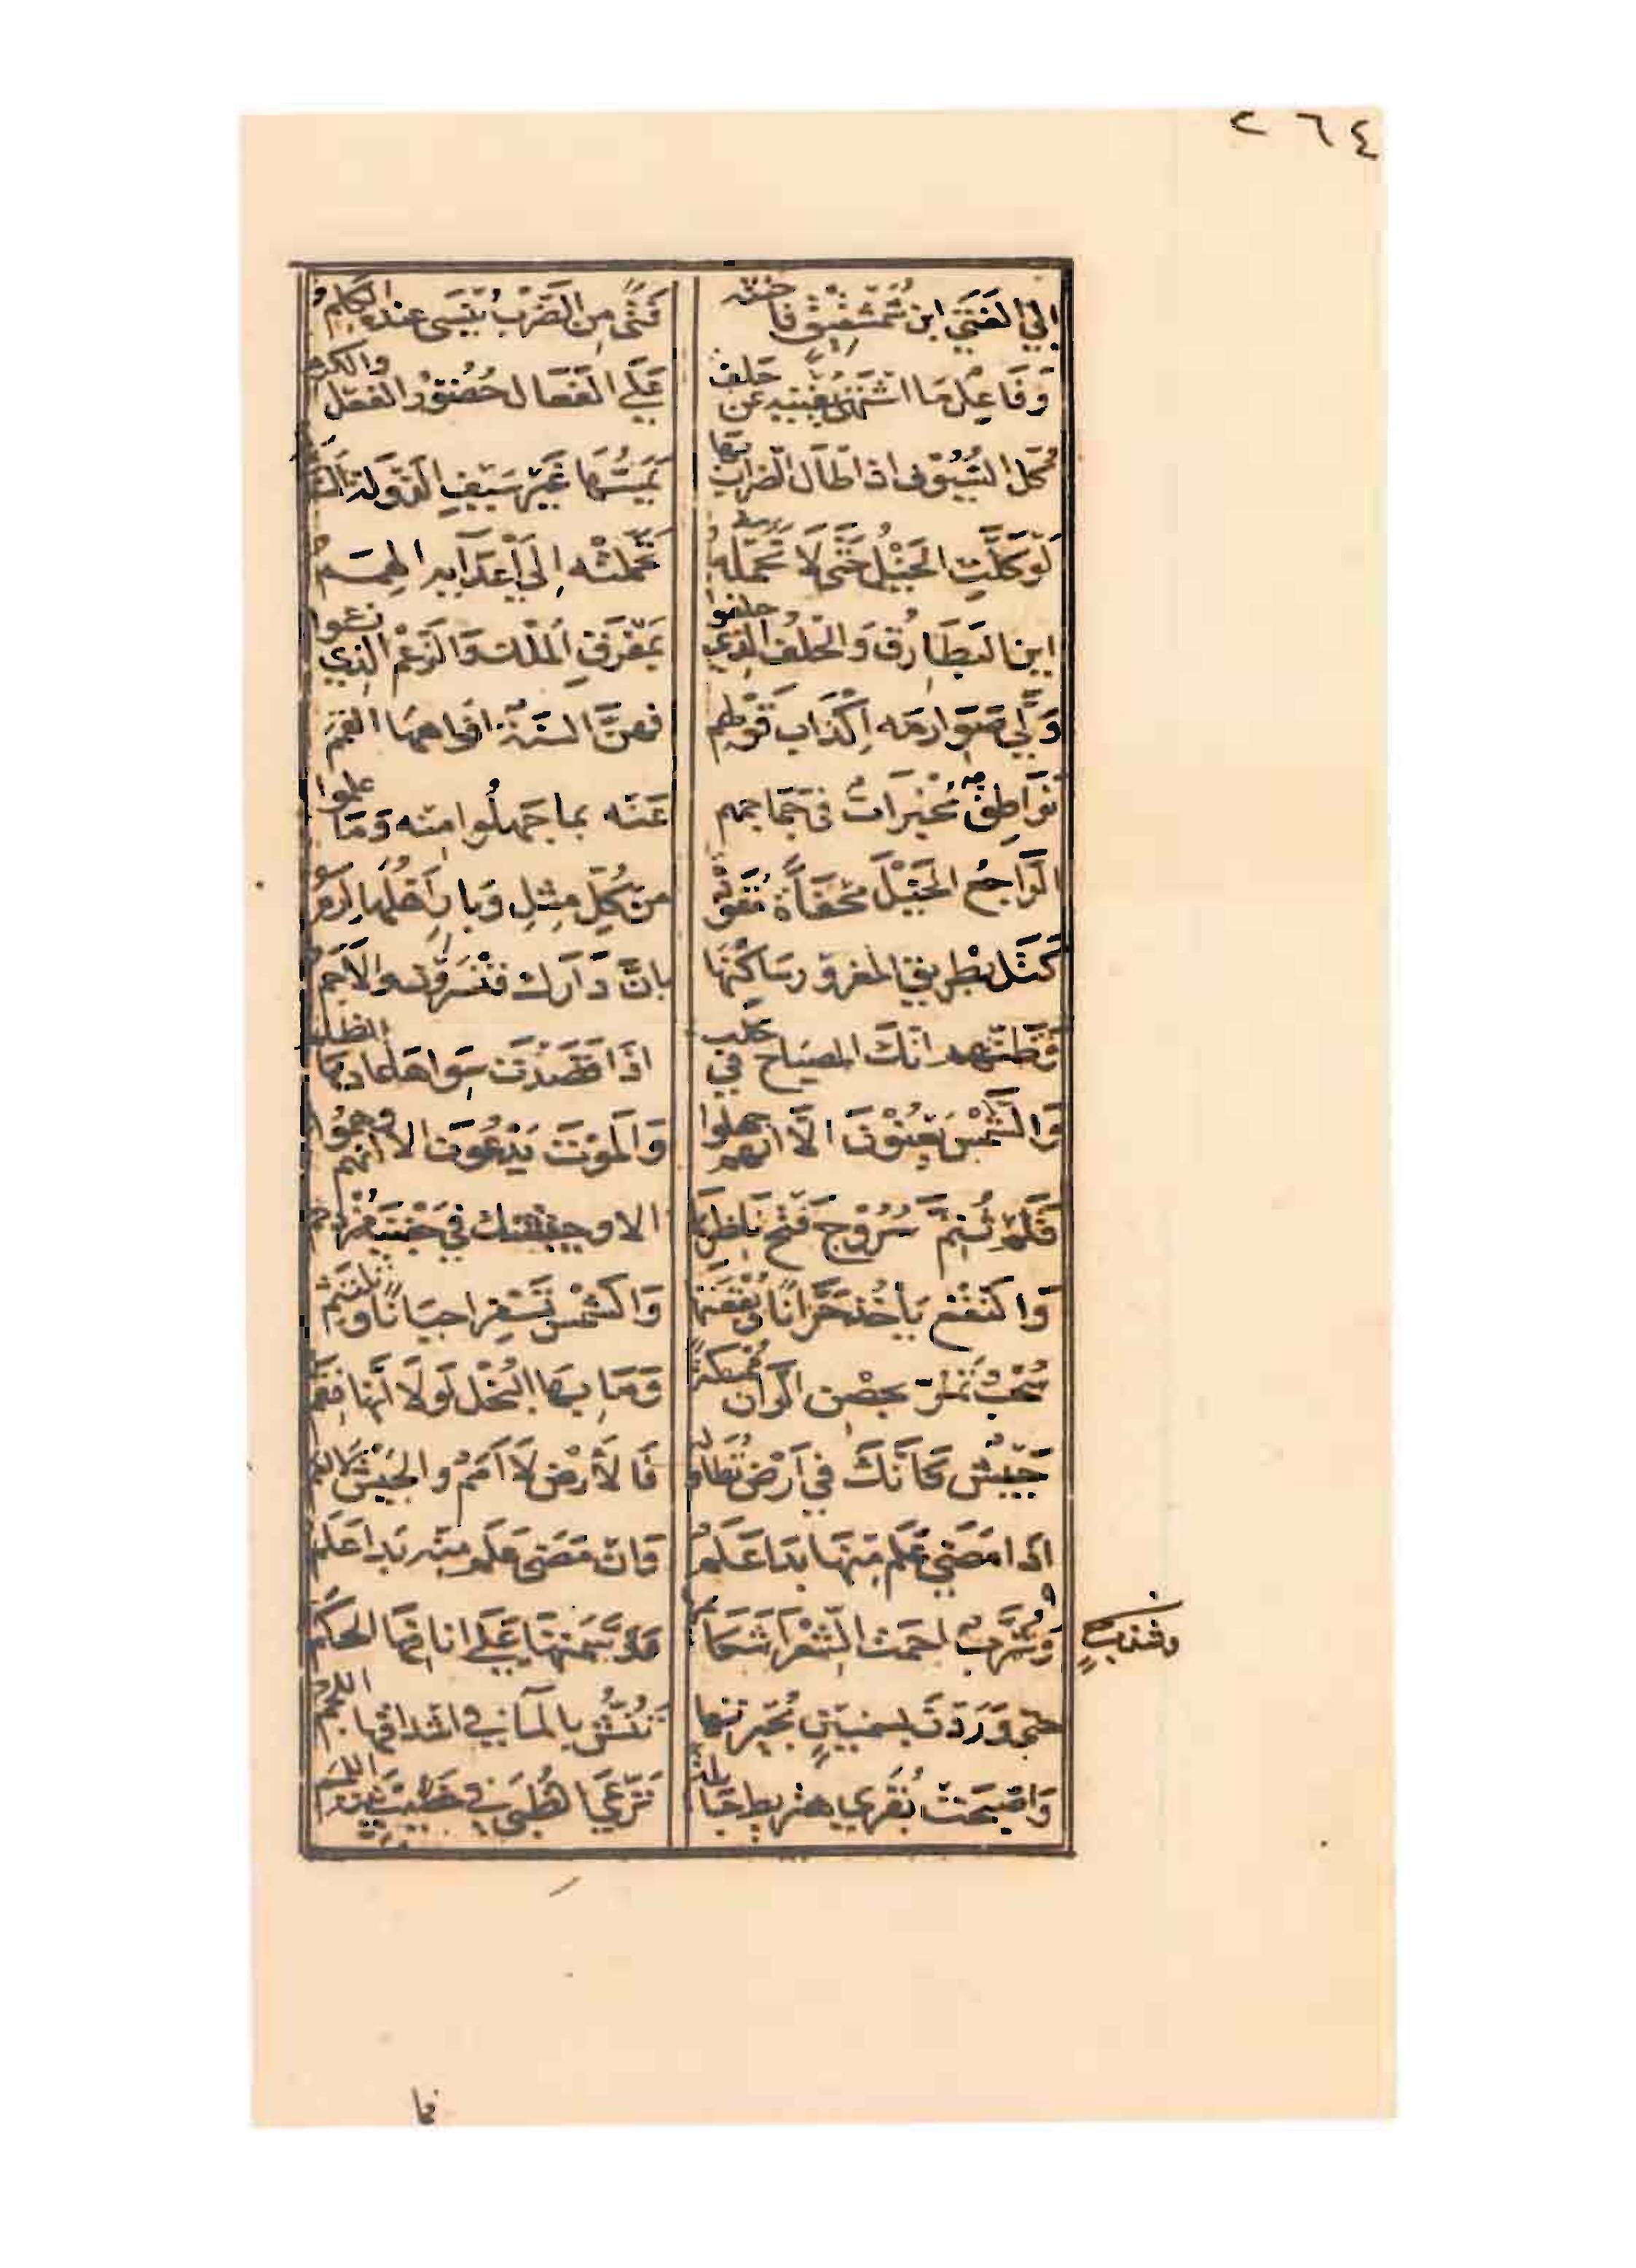 ٢٦٤
إلى الفتى ابن شمشقيق فأحنثه فتًى من الضرب ينسى عنده الكلم
وفاعل ما اشتهى يغنيه عن حلف على الفعال حضور الفعل والكرم
كل السيوف اذا طال الضراب بها يمسها غير سيف الدولة السأم
لو كلّت الخيل حتى لا تحمله تحملته إلى أعدايه الهمم
اين البطارق والحلف الذي حلفوا بمفرق الملك والزعم الذي زعموا
ولّى صوارمه إكذاب قولهم فهن السنة افواهها القمم
نواطق مخبرات في جماجمهم عنه بما جهلوا منه وما علموا
الراجع الخيل محفاة مقودة من كل مثل وبار أهلها إرم
كتل بطريق المغرور ساكنها بان دارك قنسرون والأجم
وظنهم انك المصباح في حلب اذا قصدت سواها عادها الظلم
والشمس يعنون الا انهم جهلوا والموت يدعون الا انهم وهموا
فلم تتم سروج فتح ناظرها الا وجيشك في جفنيه مزدحم
والنقع يأخذ حرانا وبقعتها والشمس تسفر احيانا وتلتثم
سحب تمر بحصن الران ممسكة وما بها البخل لولا أنها نقم
جيش كأنك في أرض تطاوله فالأرض لا أمم والجيش لا امم
اذا مضى علم منها بدا علم وان مضى علم منه بدا علم
وشزب احمت الشعرى شكائمها ووسمتها على انافها الحكم
حتى وردت بسمنين بحيرتها تنش بالماء في اشداقها اللجم
واصبحت بقرى هنزيط جائلة ترعى الظبى في خصيب نبته اللمم
فما